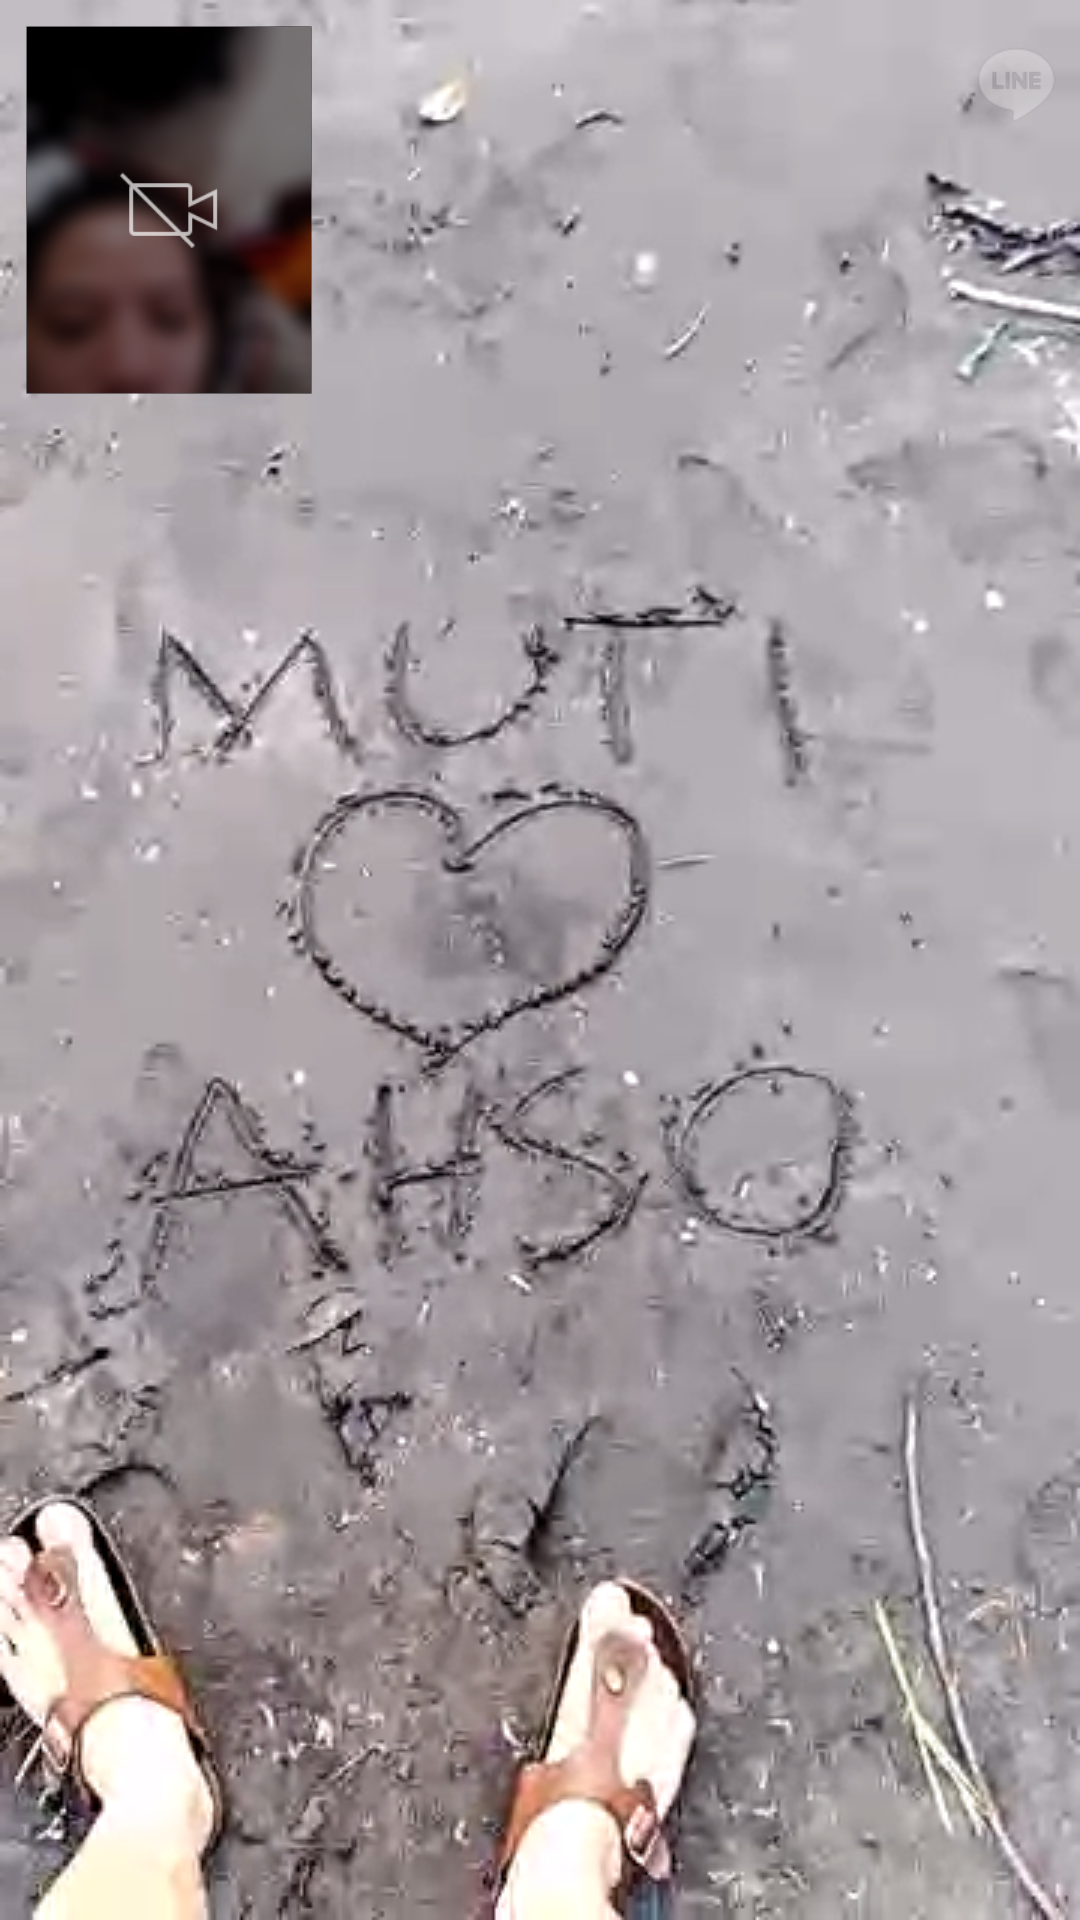 LINE
MUTI
AHSO